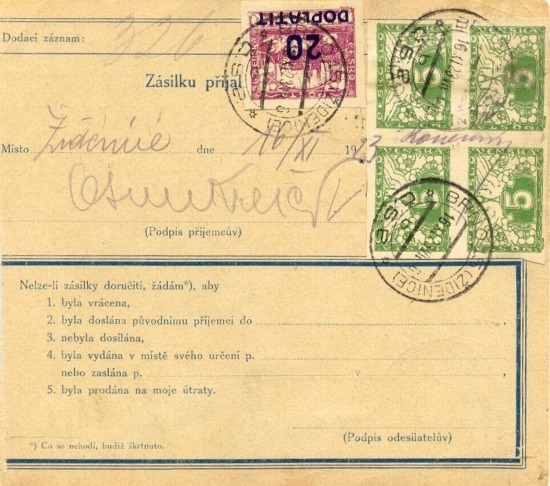 Dodací záznam: 326
DOPLATIT
20
ČESKO
Zásilku přijal
5
5
5
5
Místo Židenice dne 16/XI 1923
(Podpis příjemcův)
BRNO 5 (ŽIDENICE)
BRNO 5 (ŽIDENICE)
Nelze-li zásilky doručiti, žádám*), aby
1. byla vrácena,
2. byla doslána původnímu příjemci do
3. nebyla dosílána,
4. byla vydána v místě svého určení p.
nebo zaslána p.
5. byla prodána na moje útraty.
*) Co se nehodí, budiž škrtnuto.
(Podpis odesilatelův)